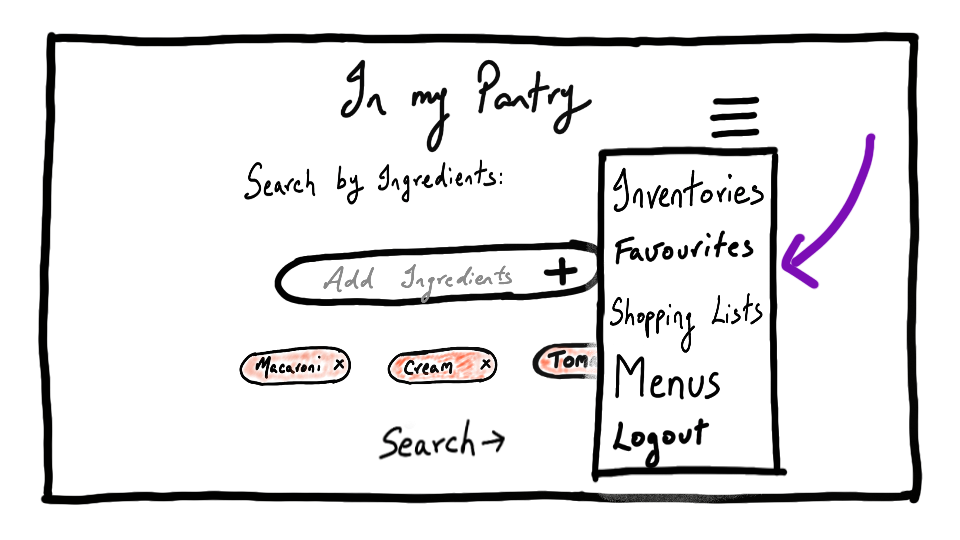 In my Pantry
Search by Ingredients:
Add Ingredients +
Macaroni x
Cream x
Tom
Search →
Inventories
Favourites
Shopping Lists
Menus
Logout